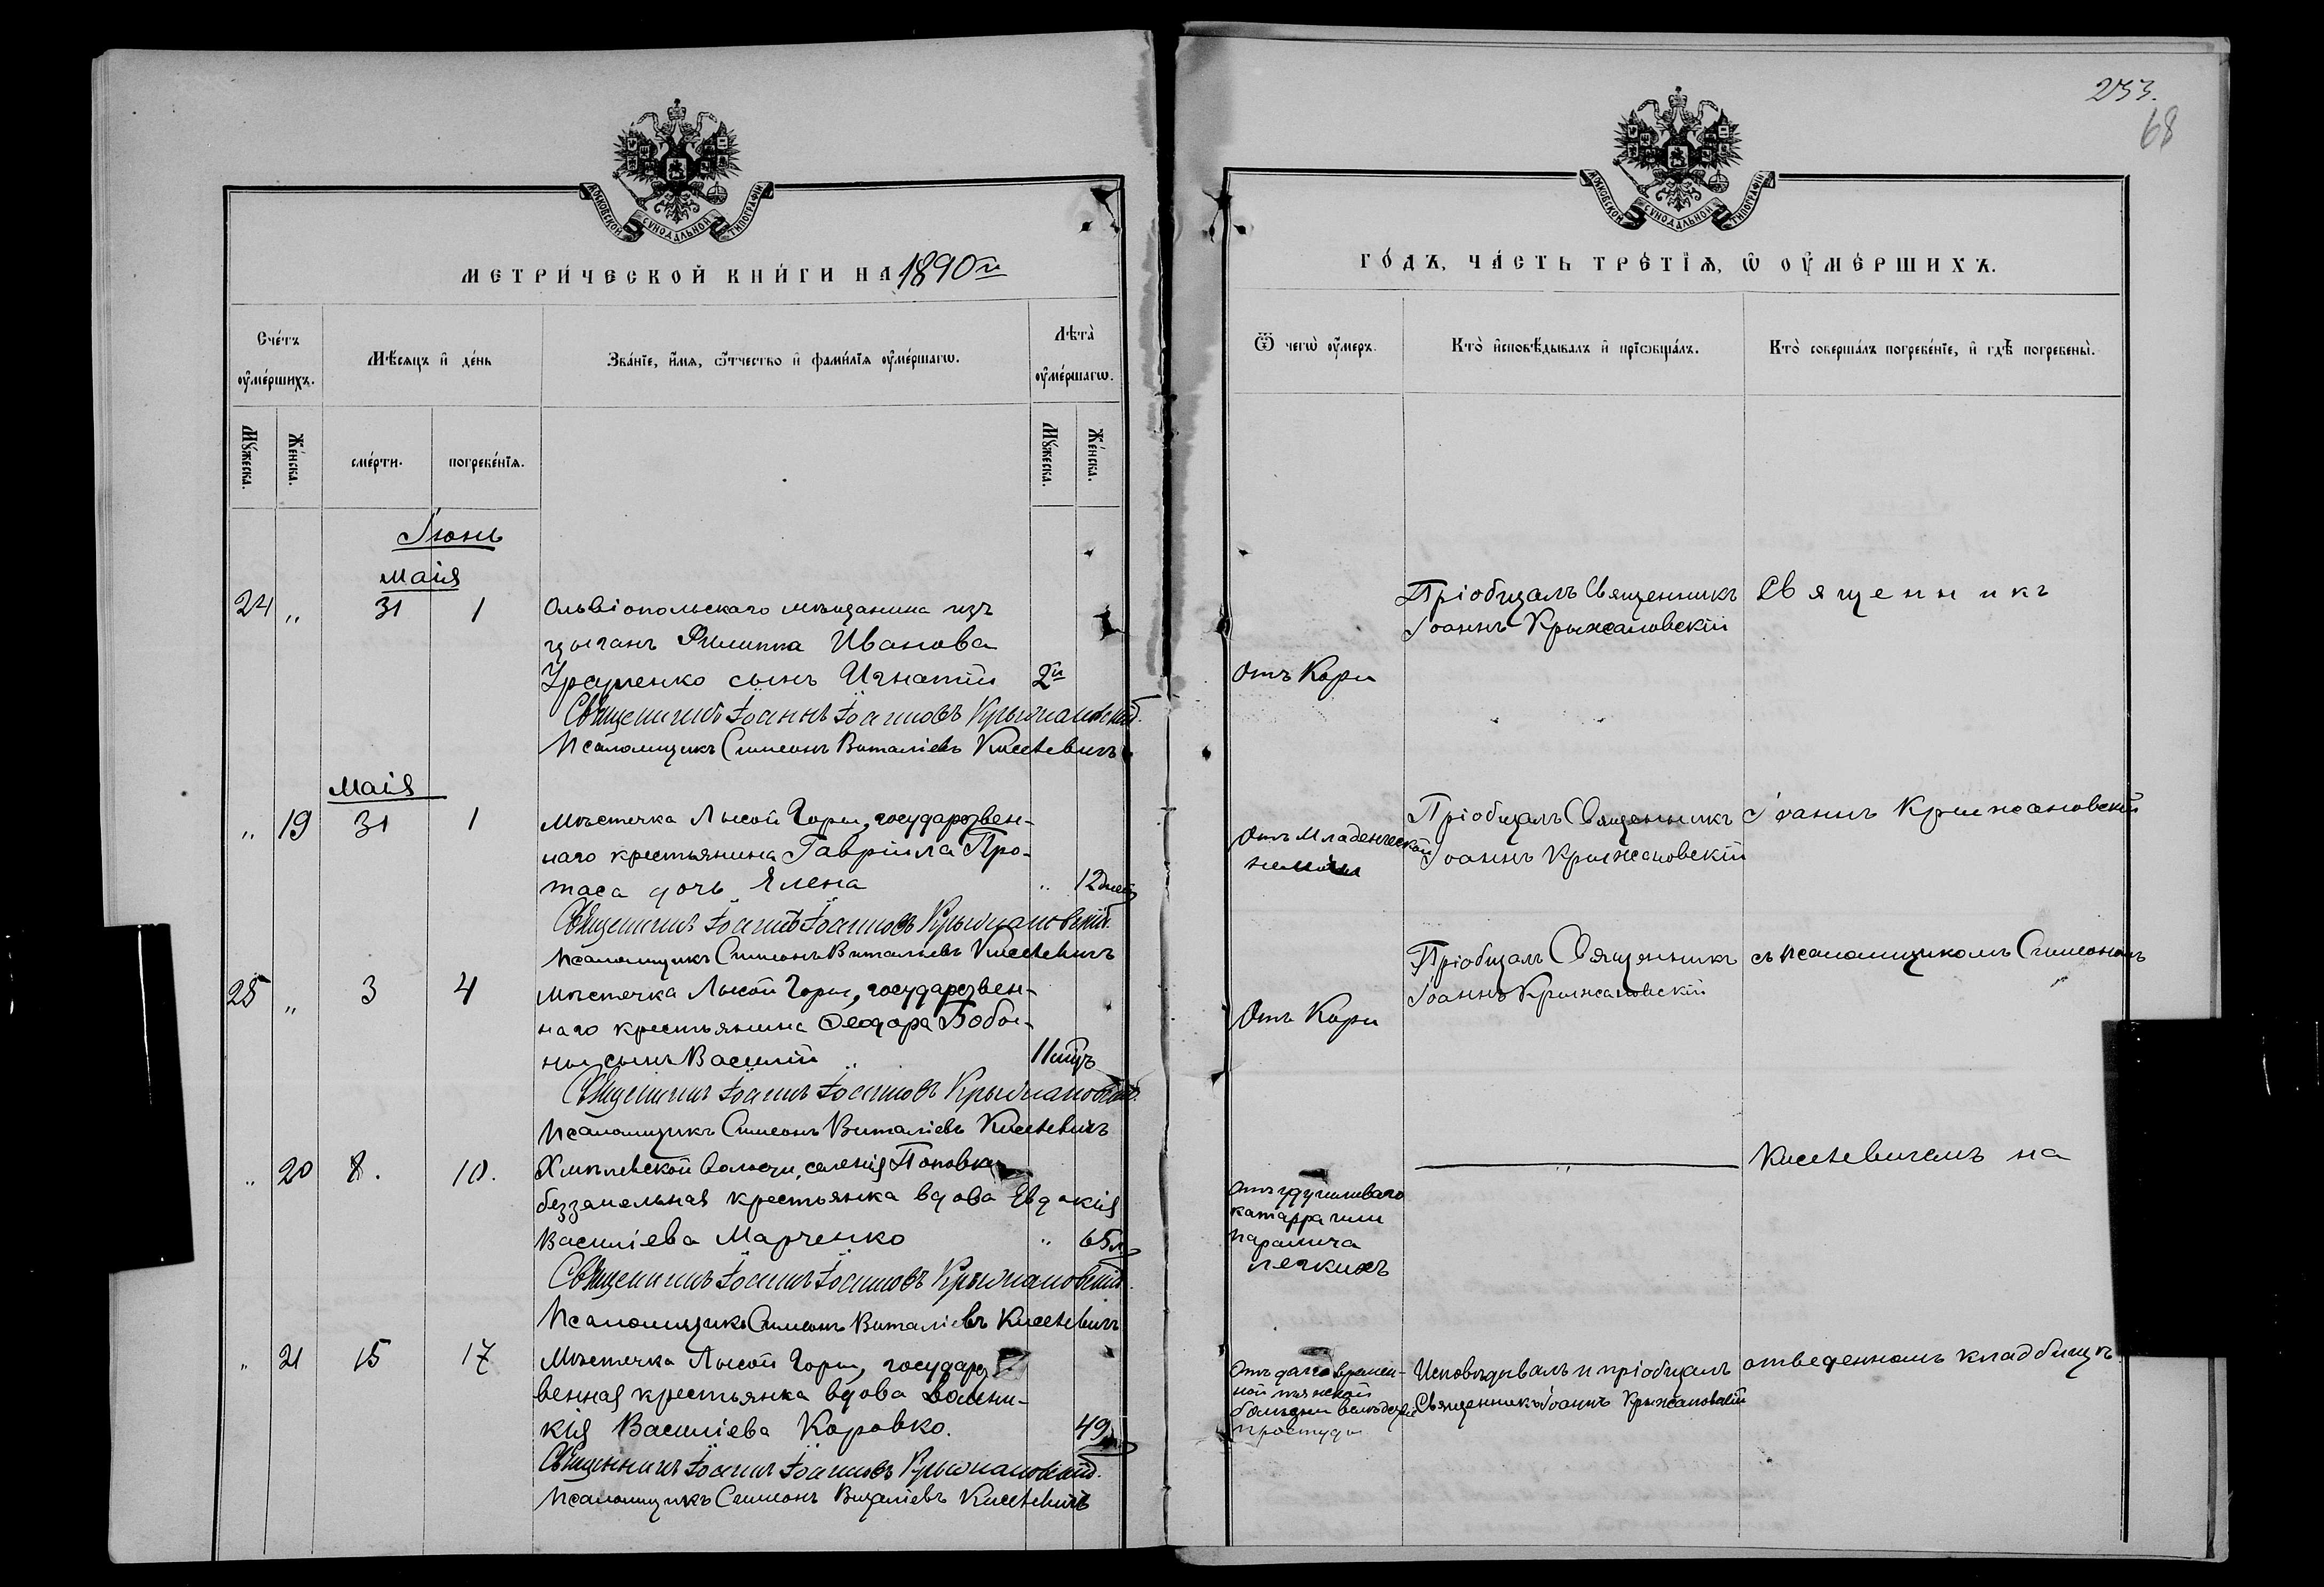 МОСКОВСКОЙ СѴНОДАЛЬНОЙ ТИПОГРАФІИ
МЕТРИ́ЧЕСКОЙ КНИ́ГИ НА 1890й
Сче́тъ оу҆ме́ршихъ.
Мѣ́сяцъ и҆ де́нь
Зва́нїе, и҆́мѧ, ѻ҆́тчество и҆ фами́лїѧ оу҆ме́ршагѡ.
Лѣта̀ оу҆ме́ршагѡ.
Мꙋ́жеска.
Же́нска.
сме́рти.
погребе́нїѧ.
Мꙋ́жеска.
Же́нска.
Іюнь
Маія
24 „ 31 1 Ольвіопольскаго мѣщанина изъ
цыганъ Филиппа Иванова
сынъ Игнатій 2й
Священникъ Іоаннъ Іоанновъ Крыжановскій.
Псаломщикъ Симеонъ Виталіевъ Киселевичъ
Маія
„ 19 31 1 Мѣстечка Лысой Горы, государствен-
наго крестьянина Гавріила Про-
таса дочь Елена „ 12 дней
Священникъ Іоаннъ Іоанновъ Крыжановскій.
Псаломщикъ Симеонъ Виталіевъ Киселевичъ
25 „ 3 4 Мѣстечка Лысой Горы, государствен-
наго крестьянина Ѳеодора Бобы-
ны сынъ Василій „ 11 мцъ
Священникъ Іоаннъ Іоанновъ Крыжановскій.
Псаломщикъ Симеонъ Виталіевъ Киселевичъ
„ 20 8. 10. волости, селенія Поповки
беззамельная крестьянка вдова Евдокія
Василіева Марченко „ 65 л
Священникъ Іоаннъ Іоанновъ Крыжановскій.
Псаломщикъ Симеонъ Виталіевъ Киселевичъ
„ 21 15 17 Мѣстечка Лысой Горы, государст-
венная крестьянка вдова Домни-
кія Василіева Коровко. 49
Священникъ Іоаннъ Іоанновъ Крыжановскій.
Псаломщикъ Симеонъ Виталіевъ Киселевичъ
253.
68
МОСКОВСКОЙ СѴНОДАЛЬНОЙ ТИПОГРАФІИ
ГО́ДЪ, ЧА́СТЬ ТРЕ́ТЇѦ, Ѡ҆ ОУ҆МЕ́РШИХЪ.
Ѿ чегѡ̀ оу҆́меръ.
Кто̀ и҆сповѣ́дывалъ и҆ прїѡбща́лъ.
Кто̀ соверша́лъ погребе́нїе, и҆ гдѣ̀ погребены̀.
Пріобщалъ Священникъ
Іоаннъ Крыжановскій
Священникъ
Отъ Кори
Отъ Младенческой
немочи
Пріобщалъ Священникъ
Іоаннъ Крыжановскій
Іоаннъ Крыжановскій
Отъ Кори
Пріобщалъ Священникъ
Іоаннъ Крыжановскій
съ псаломщикомъ Симеономъ
Отъ удушливаго
катарра или
паралича
легкихъ
„
Киселевичемъ на
Отъ долговремен-
ной
болѣзни вслѣдствіе
простуды
Исповѣдывалъ и пріобщалъ
Священникъ Іоаннъ Крыжановскій
отведенномъ кладбищѣ